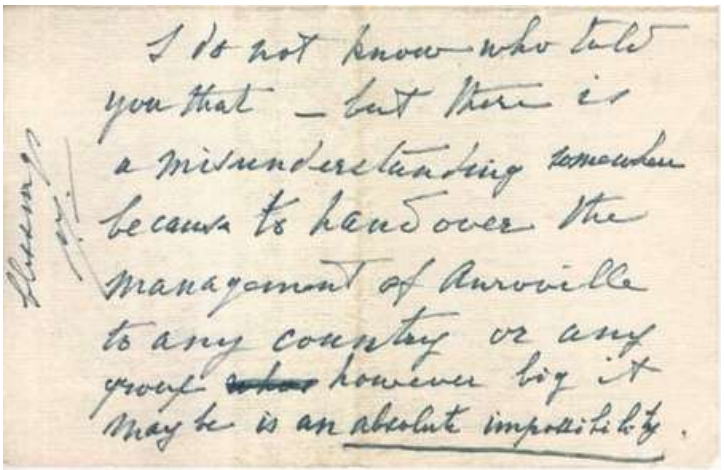 I do not know who told
you that – but there is
a misunderstanding somewhere
because to hand over the
management of Auroville
to any country or any
group however big it
may be is an absolute impossibility.
blessings